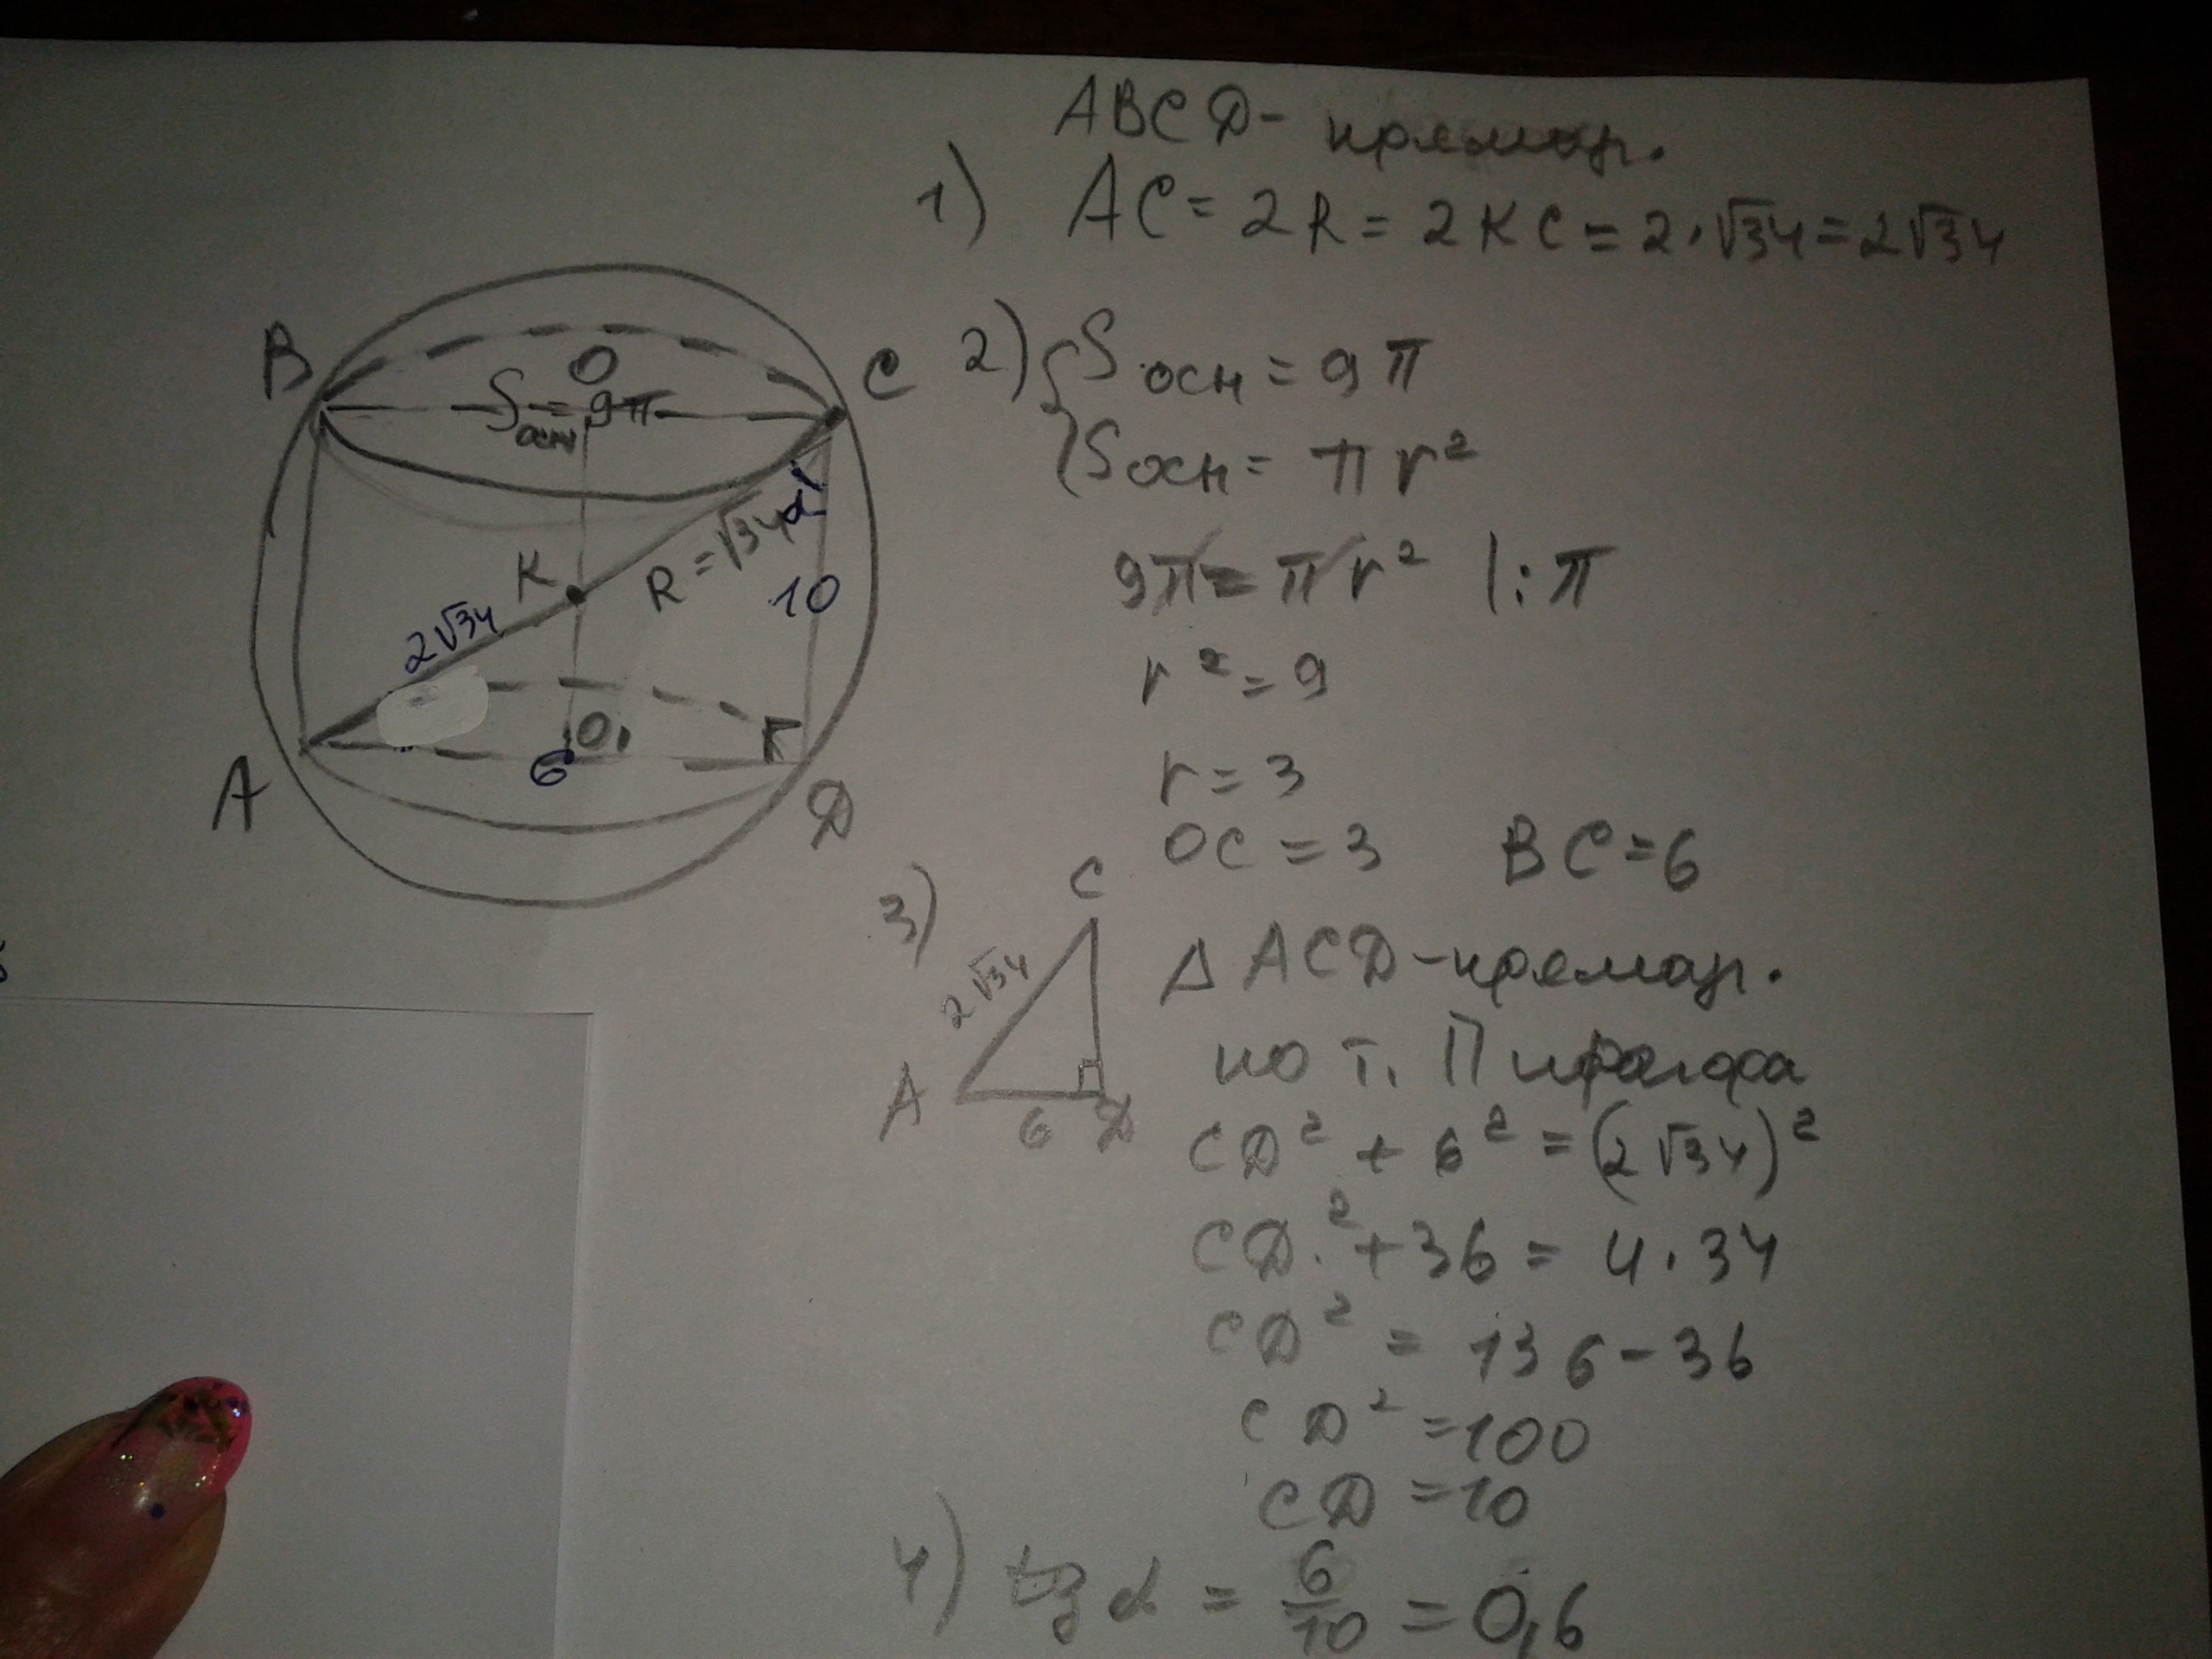 ABCD - прямоуг.
1) AC = 2R = 2KC = 2·√34 = 2√34
B
O
C
Sосн = 9π
K
R = √34
α
10
2√34
O₁
6
A
D
2) { Sосн = 9π
Sосн = πr²
9π = πr² |:π
r² = 9
r = 3
OC = 3 BC = 6
3)
C
2√34
A
6
D
Δ ACD - прямоуг.
по т. Пифагора
CD² + 6² = (2√34)²
CD² + 36 = 4·34
CD² = 136 - 36
CD² = 100
CD = 10
4) tg α = 6/10 = 0,6